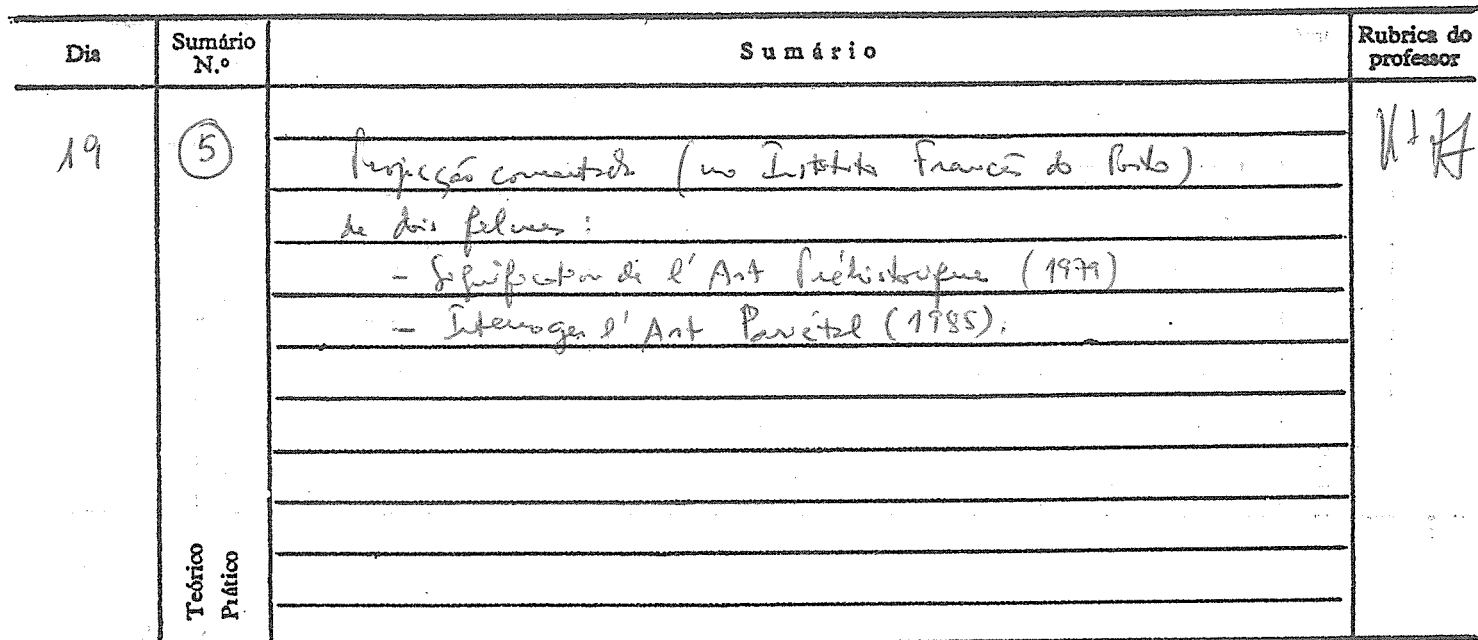 Dia
Sumário N.º
Sumário
Rubrica do professor
19
5
Projecção comentada (no Instituto Francês do Porto)
de dois filmes:
- Signification de l'Art Préhistorique (1979)
- Interroger l'Art Pariétal (1985).
Teórico
Prático